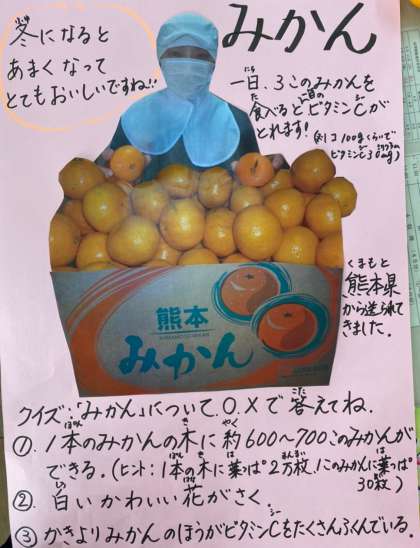 みかん
冬になると
あまくなって
とてもおいしいですね!!
一日、3このみかんを
食べると1日のビタミンCが
とれます!
(約1コ100gくらいで
ビタミンC30mg)
くまもと
熊本県
から送られて
きました。
熊本
KUMAMOTO MIKAN
みかん
クイズ:「みかん」について、○、×で答えてね。
①、1本のみかんの木に約600〜700このみかんが
できる。(ヒント:1本の木に葉っぱ2万枚、1このみかんに葉っぱ
30枚)
②、白いかわいい花がさく。
③かきよりみかんのほうがビタミンCをたくさんふくんでいる。